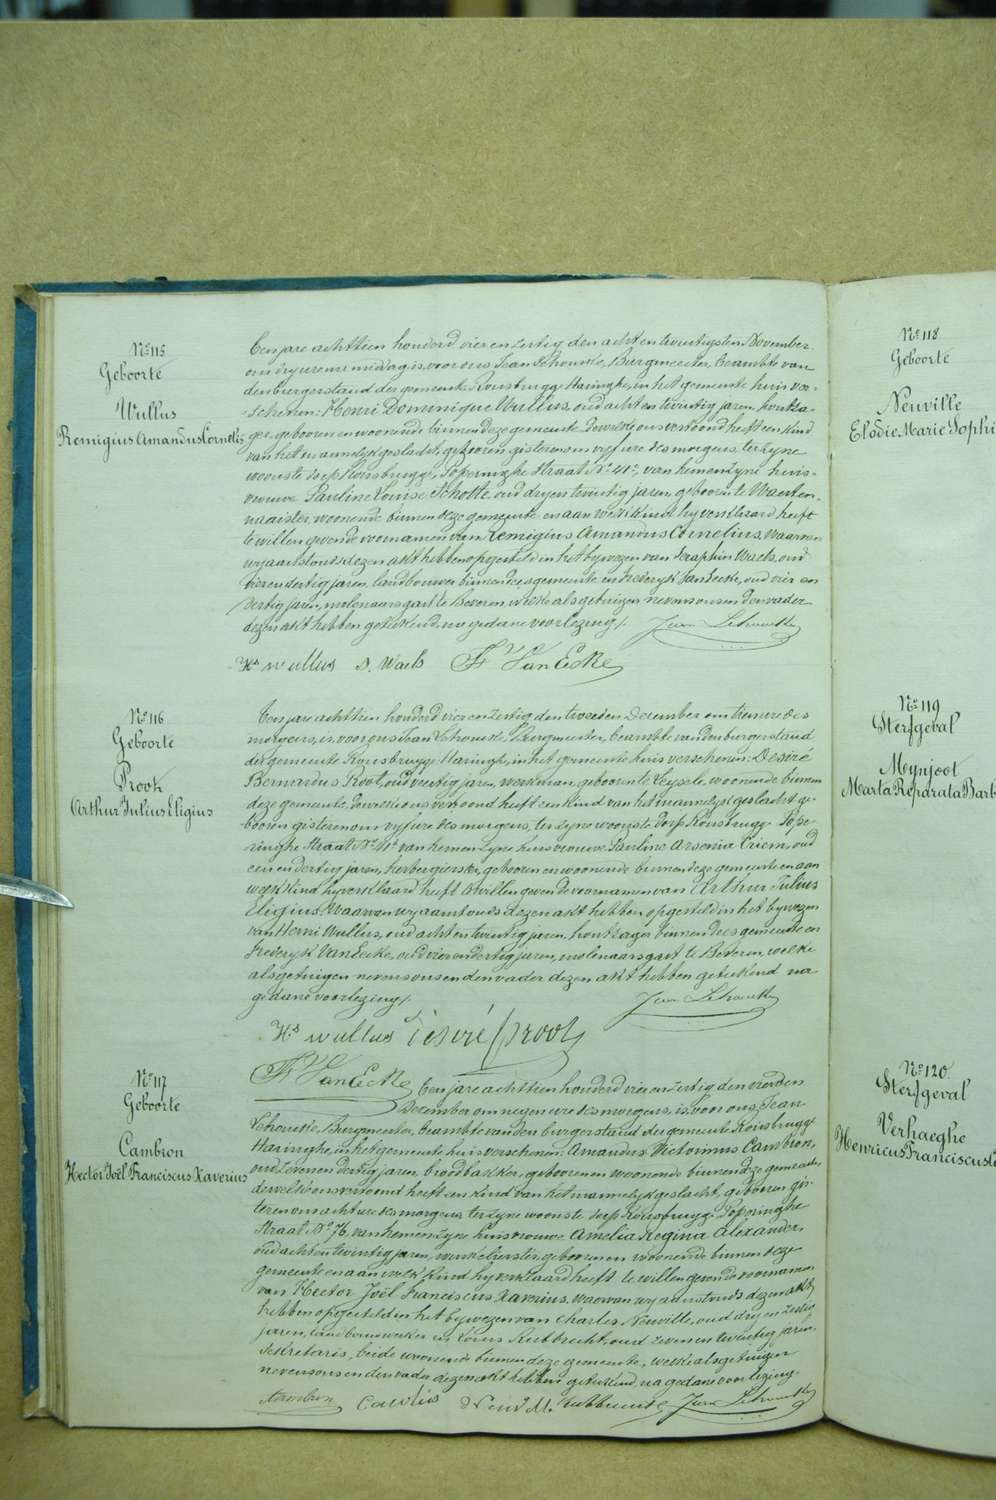 No 115
Geboorte
Wullus
Remigius Amandus Cornelis
Een jare achttien honderd vier en zestig den acht en twintigsten November
om dry uren namiddag is voor ons Jean Schoutte, Burgmeester, beambte van
den burgerstand der gemeente Rousbrugge Haringhe, in het gemeente huis ver-
schenen: Henri Dominique Wullus, oud acht en twintig jaren, houtza-
ger, geboren en woonende binnen deze gemeente, dewelke ons vertoond heeft een kind
van het mannelyk geslacht, geboren gisteren om vyf ure des morgens, ter zyne
woonste dorp Rousbrugge, Poperinghe Straat No 41, van hem en zyne huis-
vrouwe Pauline Louise Schotte, oud dry en twintig jaren, geboren te Waesten
naaister, woonende binnen deze gemeente, en aan welk kind hy verklaard heeft
te willen geven de voornamen van Remigius Amandus Cornelius, Waarvan
wy aanstonds dezen akt hebben opgesteld in het bywezen van Seraphin Waels, oud
vier en dertig jaren, landbouwer binnen dees gemeente, en Frederyk Van Eecke, oud vier en
dertig jaren, molenaarsgast te Beveren, welke als getuigen nevens ons en den vader
dezen akt hebben geteekend, na gedane voorlezing/.
Hri wullus S. Waels Fk Van Ecke
No 116
Geboorte
Proot
Arthur Julius Eligius
Een jare achttien honderd vier en zestig den tweeden December om tien ure des
morgens, is voor ons Jean Schoutte Burgmeester, beambte van den burgerstand
der gemeente Rousbrugge Haringhe, in het gemeente huis verschenen: Desiré
Bernardus Proot, oud veertig jaren, werkman, geboren te Leysele, woonende binnen
deze gemeente, dewelke ons vertoond heeft een kind van het mannelyk geslacht ge-
boren gisteren om vyf ure des morgens, ter zyne woonste dorp Rousbrugge Pope-
ringhe Straat No 41 van hem en zyne huisvrouwe Pauline Arsenia Criem, oud
een en dertig jaren, herbergierster, geboren en woonende binnen deze gemeente en aan
welk kind hy verklaard heeft te willen geven de voornamen van Arthur Julius
Eligius, Waarvan wy aanstonds dezen akt hebben opgesteld in het bywezen
van Henri Wullus, oud acht en twintig jaren, houtzager binnen dees gemeente en
Frederyk Van Eecke, oud vier en dertig jaren, molenaarsgast te Beveren, welke
als getuigen nevens ons en den vader dezen akt hebben geteekend na
gedane voorlezing/.
Hri wullus Desiré Proot
Fk Van Ecke
No 117
Geboorte
Cambron
Hector Joël Franciscus Xaverius
Een jare achttien honderd vier en zestig den vierden
December om negen ure des morgens, is voor ons, Jean
Schoutte, Burgmeester, beambte van den burgerstand der gemeente Rousbrugge
Haringhe, in het gemeente huis verschenen: Amandus Victorinus Cambron,
oud zeven en dertig jaren, broodbakker, geboren en woonende binnen deze gemeente,
dewelke ons vertoond heeft een kind van het mannelyk geslacht, geboren gis-
teren om acht ure des morgens, ter zyne woonste dorp Rousbrugge Poperinghe
Straat No 76, van hem en zyne huisvrouwe Amelia Regina Alexander,
oud acht en twintig jaren, winkelierster, geboren en woonende binnen deze
gemeente en aan welk kind hy verklaard heeft te willen geven de voornamen
van Hector Joël Franciscus Xaverius, waarvan wy aanstonds dezen akt
hebben opgesteld in het bywezen van Charles Neuville, oud dry en zestig
jaren, landbouwwerker en Louis Rubbrecht, oud zeven en twintig jaren,
sekretaris, beide woonende binnen deze gemeente, welke als getuigen
nevens ons en den vader dezen akt hebben geteekend, na gedane voorlezing.
No 118
Geboorte
Neuville
Elodie Marie Sophi
No 119
Sterfgeval
Meynjoot
Marta Reparata Barb
No 120
Sterfgeval
Verhaeghe
Henricus Franciscus